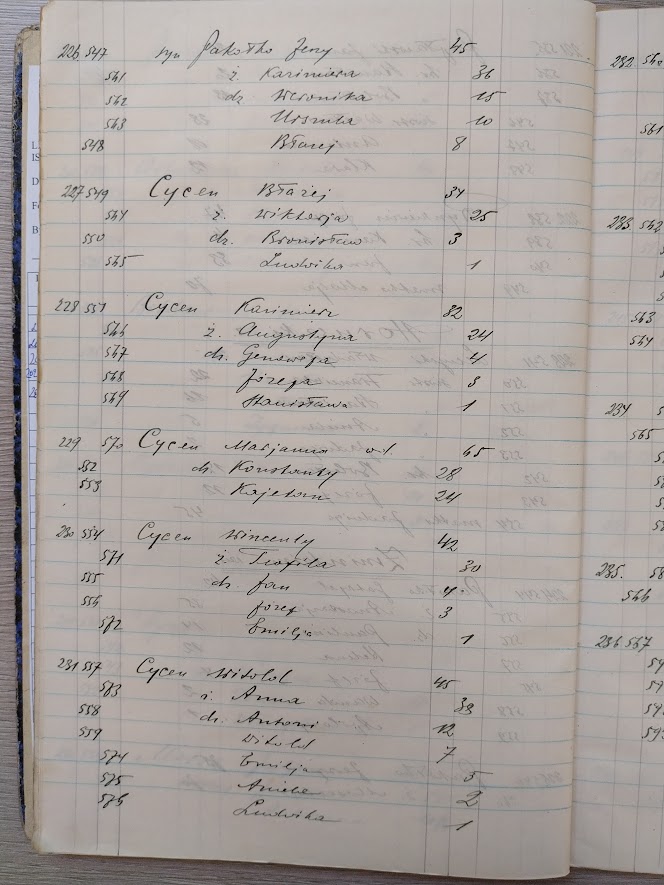 226 547 syn Jerzy 45
561 ż. Kazimiera 36
562 dz. Weronika 15
563 Urszula 10
548 Błażej 8
227 549 Cycen Błażej 34
564 ż. Wiktorja 25
550 dz. Bronisław 3
565 Ludwika 1
228 551 Cycen Kazimierz 32
566 ż. Augustyna 24
567 dz. Genowefa 4
568 Józefa 3
569 Stanisława 1
229 570 Cycen Marjanna wd. 65
552 dz. Konstanty 28
553 Kajetan 24
230 554 Cycen Wincenty 42
571 ż. Teofila 30
555 dz. Jan 4
556 Józef 3
572 Emilja 1
231 557 Cycen Witold 45
573 ż. Anna 39
558 dz. Antoni 12
559 Witold 7
574 Emilja 5
575 Aniela 2
576 Ludwika 1
232 560
561
233 562
563
564
234
565
235.
566
236 567